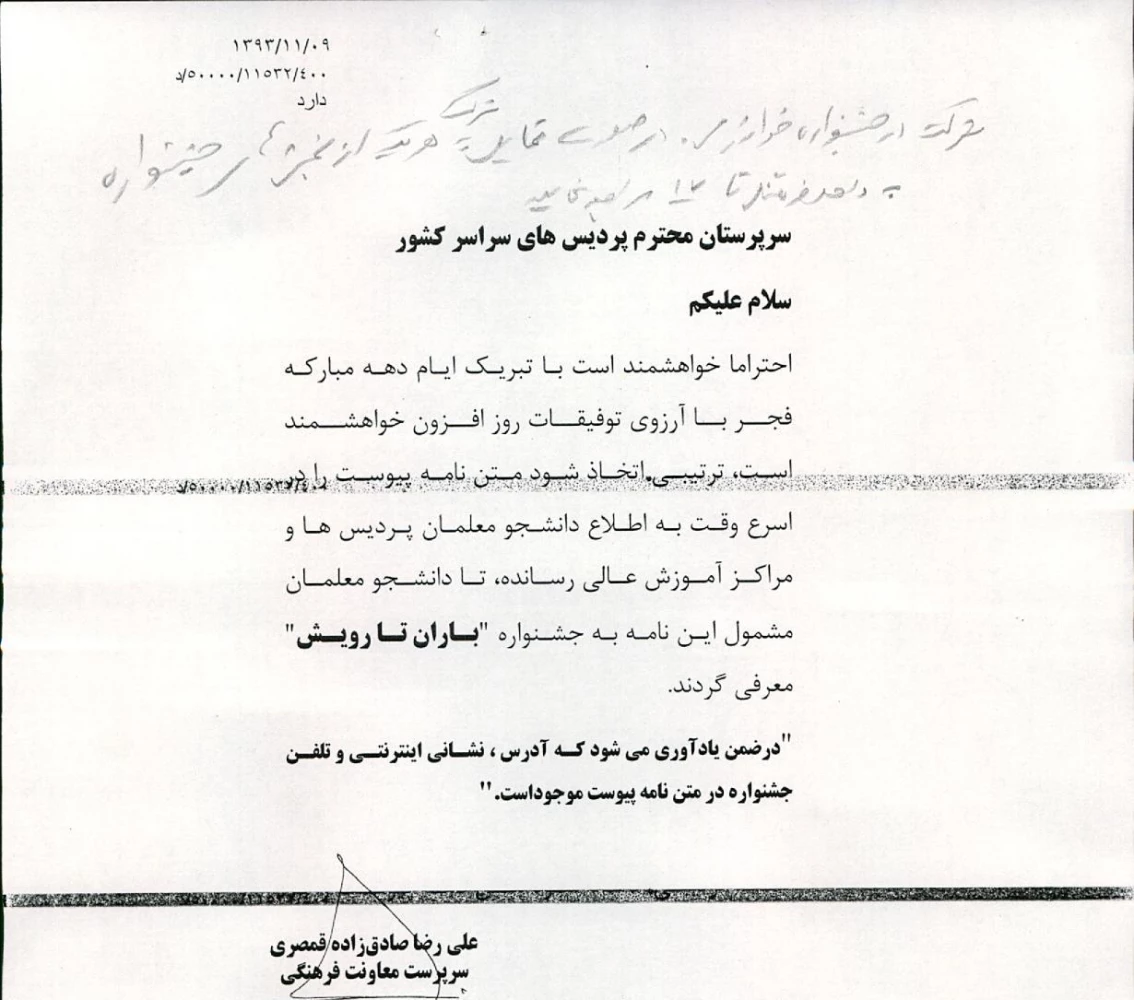 ۱۳۹۳/۱۱/۰۹
۵۰۰۰۰/۱۱۵۳۲/۴۰۰/د
دارد
شرکت در جشنواره خوارزمی. در صورت تمایل به شرکت هریک از بخش های جشنواره
به واحد فرهنگی تا ۱۷ مراجعه نمایید
سرپرستان محترم پردیس های سراسر کشور
سلام علیکم
احتراما خواهشمند است با تبریک ایام دهه مبارکه
فجر با آرزوی توفیقات روز افزون خواهشمند
است، ترتیبی اتخاذ شود متن نامه پیوست را در
اسرع وقت به اطلاع دانشجو معلمان پردیس ها و
مراکز آموزش عالی رسانده، تا دانشجو معلمان
مشمول این نامه به جشنواره "باران تا رویش"
معرفی گردند.
"درضمن یادآوری می شود که آدرس ، نشانی اینترنتی و تلفن
جشنواره در متن نامه پیوست موجوداست."
علی رضا صادق‌زاده قمصری
سرپرست معاونت فرهنگی